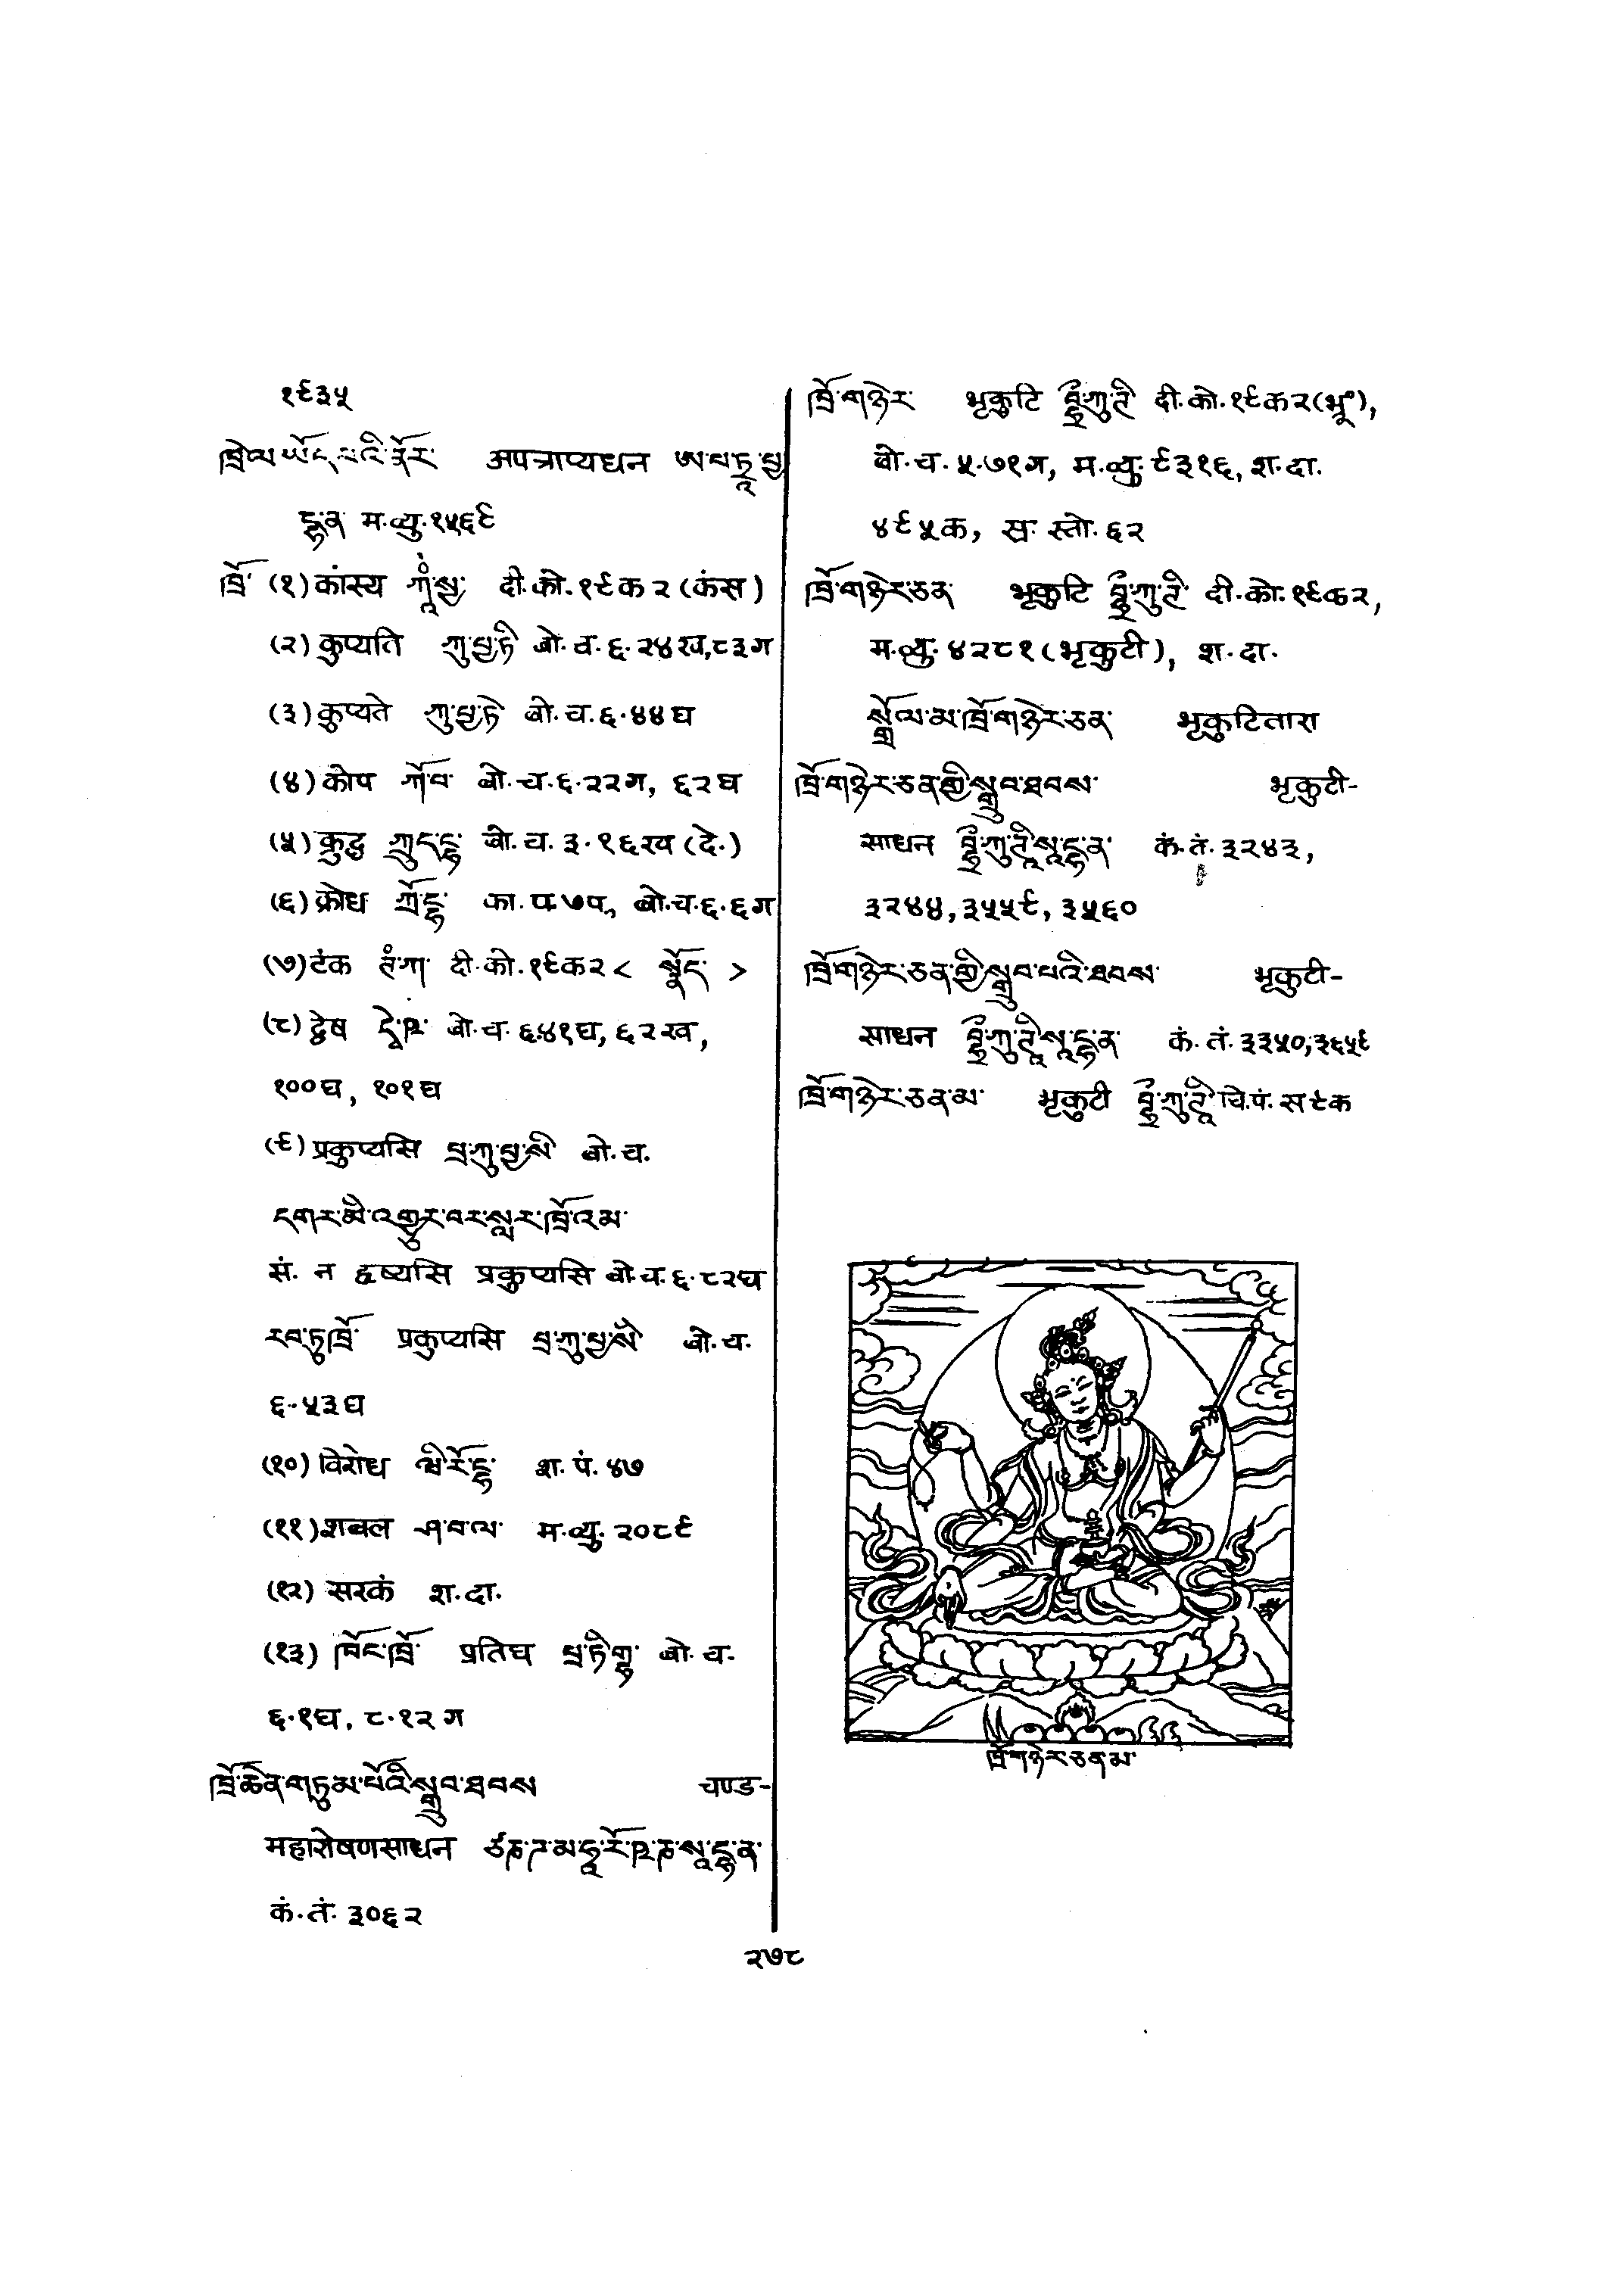 १९३५
ཁྲེལ་ཡོད་པའི་ནོར་ अपत्राप्यधन ཨ་པ་ཏྲཱ་པྱ
དྷ་ན མ.व्यु.१५६९
ཁྲོ་ (१) कांस्य ཀཱཾ་སྱ་ दी.को.१९क२ (कंस)
(२) कुप्यति ཀུ་པྱ་ཏི བो.च.६.२४ख,८३ग
(३) कुप्यते ཀུ་པྱ་ཏེ बो.च.६.४४घ
(४) कोप ཀོ་པ་ बो.च.६.२२ग, ६२घ
(५) क्रुद्ध ཀྲུད་དྷ་ बो.च.३.१६ख (दे.)
(६) क्रोध ཀྲོ་དྷ་ का.प.७प, बो.च.६.६ग
(७) टंक ཊཾ་ཀ་ दी.को.१९क२ < སྣོད་ >
(८) द्वेष དྭེ་ཥ་ बो.च.६.४१घ, ६२ख,
१००घ, १०१घ
(९) प्रकुप्यसि པྲ་ཀུ་པྱ་སི बो.च.
དགར་མི་འགྱུར་བར་སླར་ཁྲོ་འམ་
सं. न हृष्यसि प्रकुप्यसि बो.च.६.८२घ
རབ་ཏུ་ཁྲོ་ प्रकुप्यसि པྲ་ཀུ་པྱ་སི बो.च.
६.५३घ
(१०) विरोध ཝི་རོ་དྷ་ श.पं.४७
(११) शबल ཤ་བ་ལ་ म.व्यु.२०८९
(१२) सरकं श.दा.
(१३) ཁོང་ཁྲོ་ प्रतिघ པྲ་ཏི་གྷ་ बो.च.
६.१घ, ८.१२ग
ཁྲོ་ཆེན་གཏུམ་པོའི་སྒྲུབ་ཐབས चण्ड-
महारोषणसाधन ཙཎ་ཌ་མ་ཧཱ་རོ་ཥ་ཎ་སཱ་དྷ་ན་
कं.तं. ३०६२
ཁྲོ་གཉེར་ भृकुटि བྷྲྀ་ཀུ་ཊི दी.को.१९क२(भ्रू०),
बो.च.५.७१ग, म.व्यु.९३१६, श.दा.
४९५क, स्र.स्तो.६२
ཁྲོ་གཉེར་ཅན་ भृकुटि བྷྲྀ་ཀུ་ཊི दी.को.१९क२,
म.व्यु.४२८१ (भृकुटी), श.दा.
སྒྲོལ་མ་ཁྲོ་གཉེར་ཅན་ भृकुटितारा
ཁྲོ་གཉེར་ཅན་གྱི་སྒྲུབ་ཐབས་ भृकुटी-
साधन བྷྲྀ་ཀུ་ཊཱི་སཱ་དྷ་ན་ कं.तं.३२४३,
३२४४, ३५५९, ३५६०
ཁྲོ་གཉེར་ཅན་གྱི་སྒྲུབ་པའི་ཐབས་ भृकुटी-
साधन བྷྲྀ་ཀུ་ཊཱི་སཱ་དྷ་ན་ कं.तं.३३५०,३६५९
ཁྲོ་གཉེར་ཅན་མ་ भृकुटी བྷྲྀ་ཀུ་ཊཱི चि.पं.स९क
ཁྲོ་གཉེར་ཅན་མ་
२७८